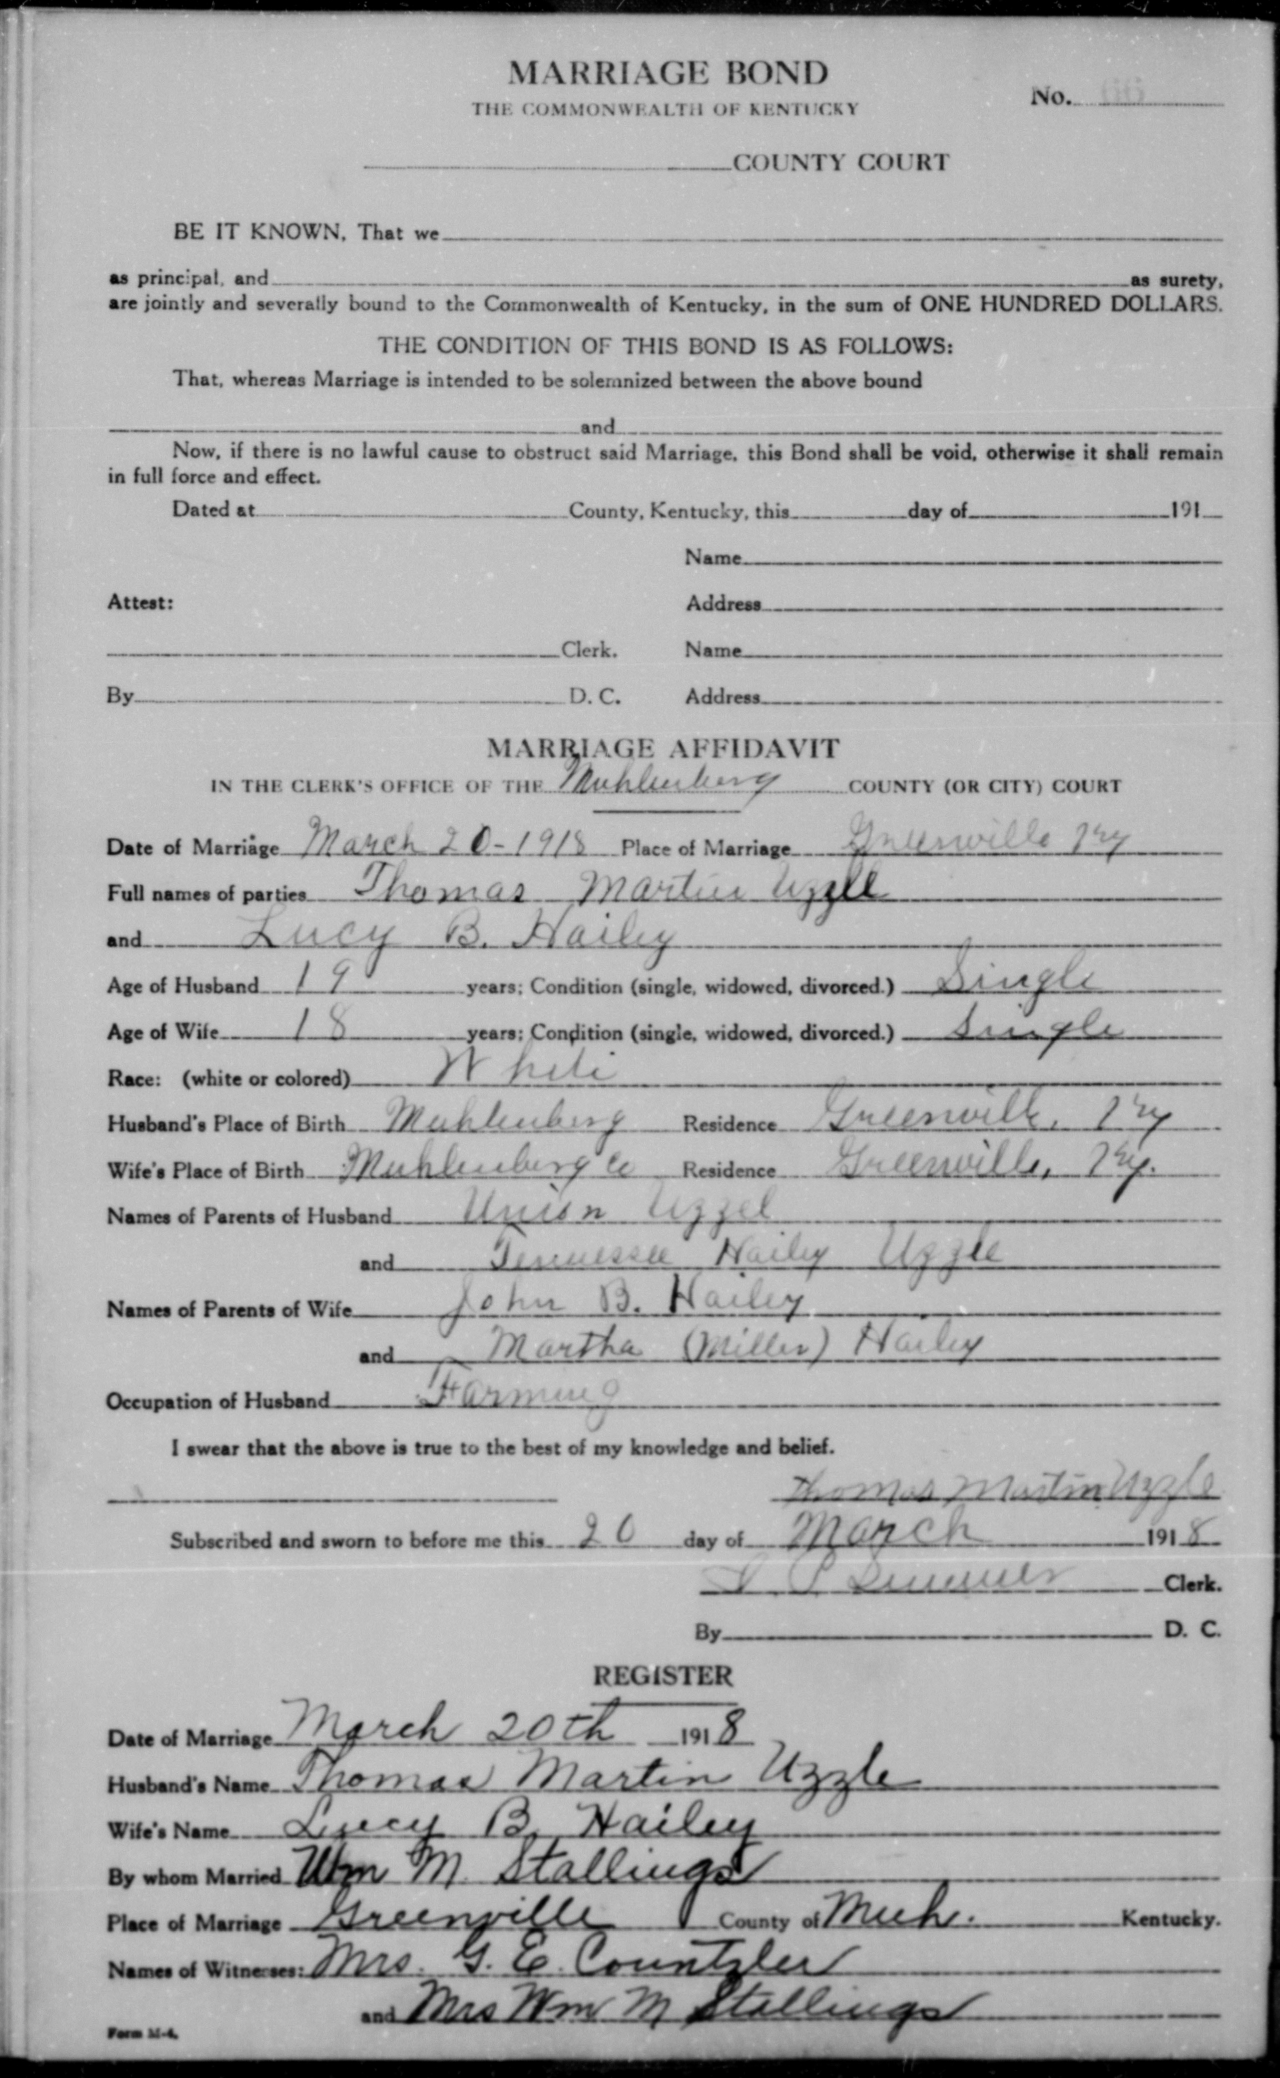 MARRIAGE BOND
No. 66
THE COMMONWEALTH OF KENTUCKY
COUNTY COURT
BE IT KNOWN, That we
as principal, and as surety,
are jointly and severally bound to the Commonwealth of Kentucky, in the sum of ONE HUNDRED DOLLARS.
THE CONDITION OF THIS BOND IS AS FOLLOWS:
That, whereas Marriage is intended to be solemnized between the above bound
and
Now, if there is no lawful cause to obstruct said Marriage, this Bond shall be void, otherwise it shall remain
in full force and effect.
Dated at County, Kentucky, this day of 191
Name
Attest: Address
Clerk. Name
By D. C. Address
MARRIAGE AFFIDAVIT
IN THE CLERK'S OFFICE OF THE Muhlenberg COUNTY (OR CITY) COURT
Date of Marriage March 20-1918 Place of Marriage Greenville Ky
Full names of parties Thomas Martin Uzzle
and Lucy B. Hailey
Age of Husband 19 years; Condition (single, widowed, divorced.) Single
Age of Wife 18 years; Condition (single, widowed, divorced.) Single
Race: (white or colored) White
Husband's Place of Birth Muhlenberg Residence Greenville, Ky
Wife's Place of Birth Muhlenberg Co Residence Greenville, Ky.
Names of Parents of Husband Union Uzzel
and Tennessee Hailey Uzzle
Names of Parents of Wife John B. Hailey
and Martha (Miller) Hailey
Occupation of Husband Farming
I swear that the above is true to the best of my knowledge and belief.
Thomas Martin Uzzle
Subscribed and sworn to before me this 20 day of March 1918
Clerk.
By D. C.
REGISTER
Date of Marriage March 20th 1918
Husband's Name Thomas Martin Uzzle
Wife's Name Lucy B. Hailey
By whom Married Wm M. Stallings
Place of Marriage Greenville County of Muh. Kentucky.
Names of Witnesses: Mrs. G. E. Countzler
and Mrs Wm M Stallings
Form M-4.